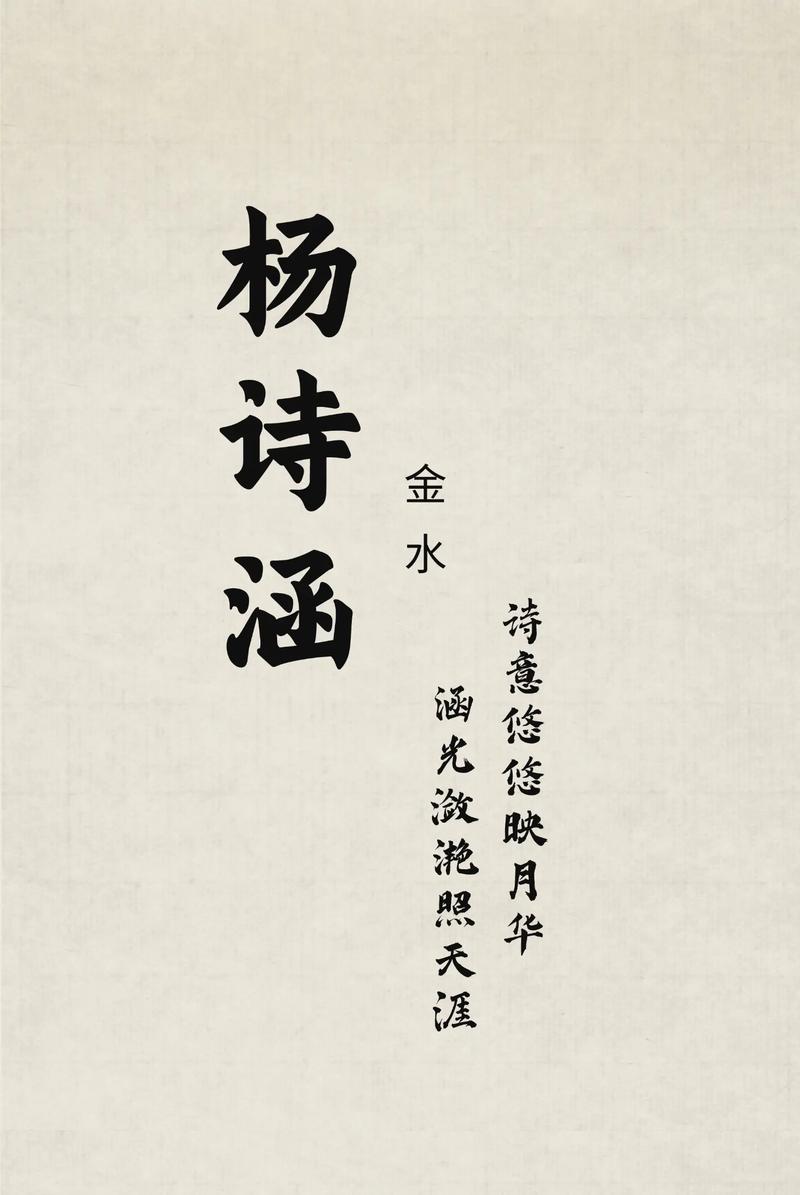 杨诗涵
金水
诗意悠悠映月华
涵光潋滟照天涯